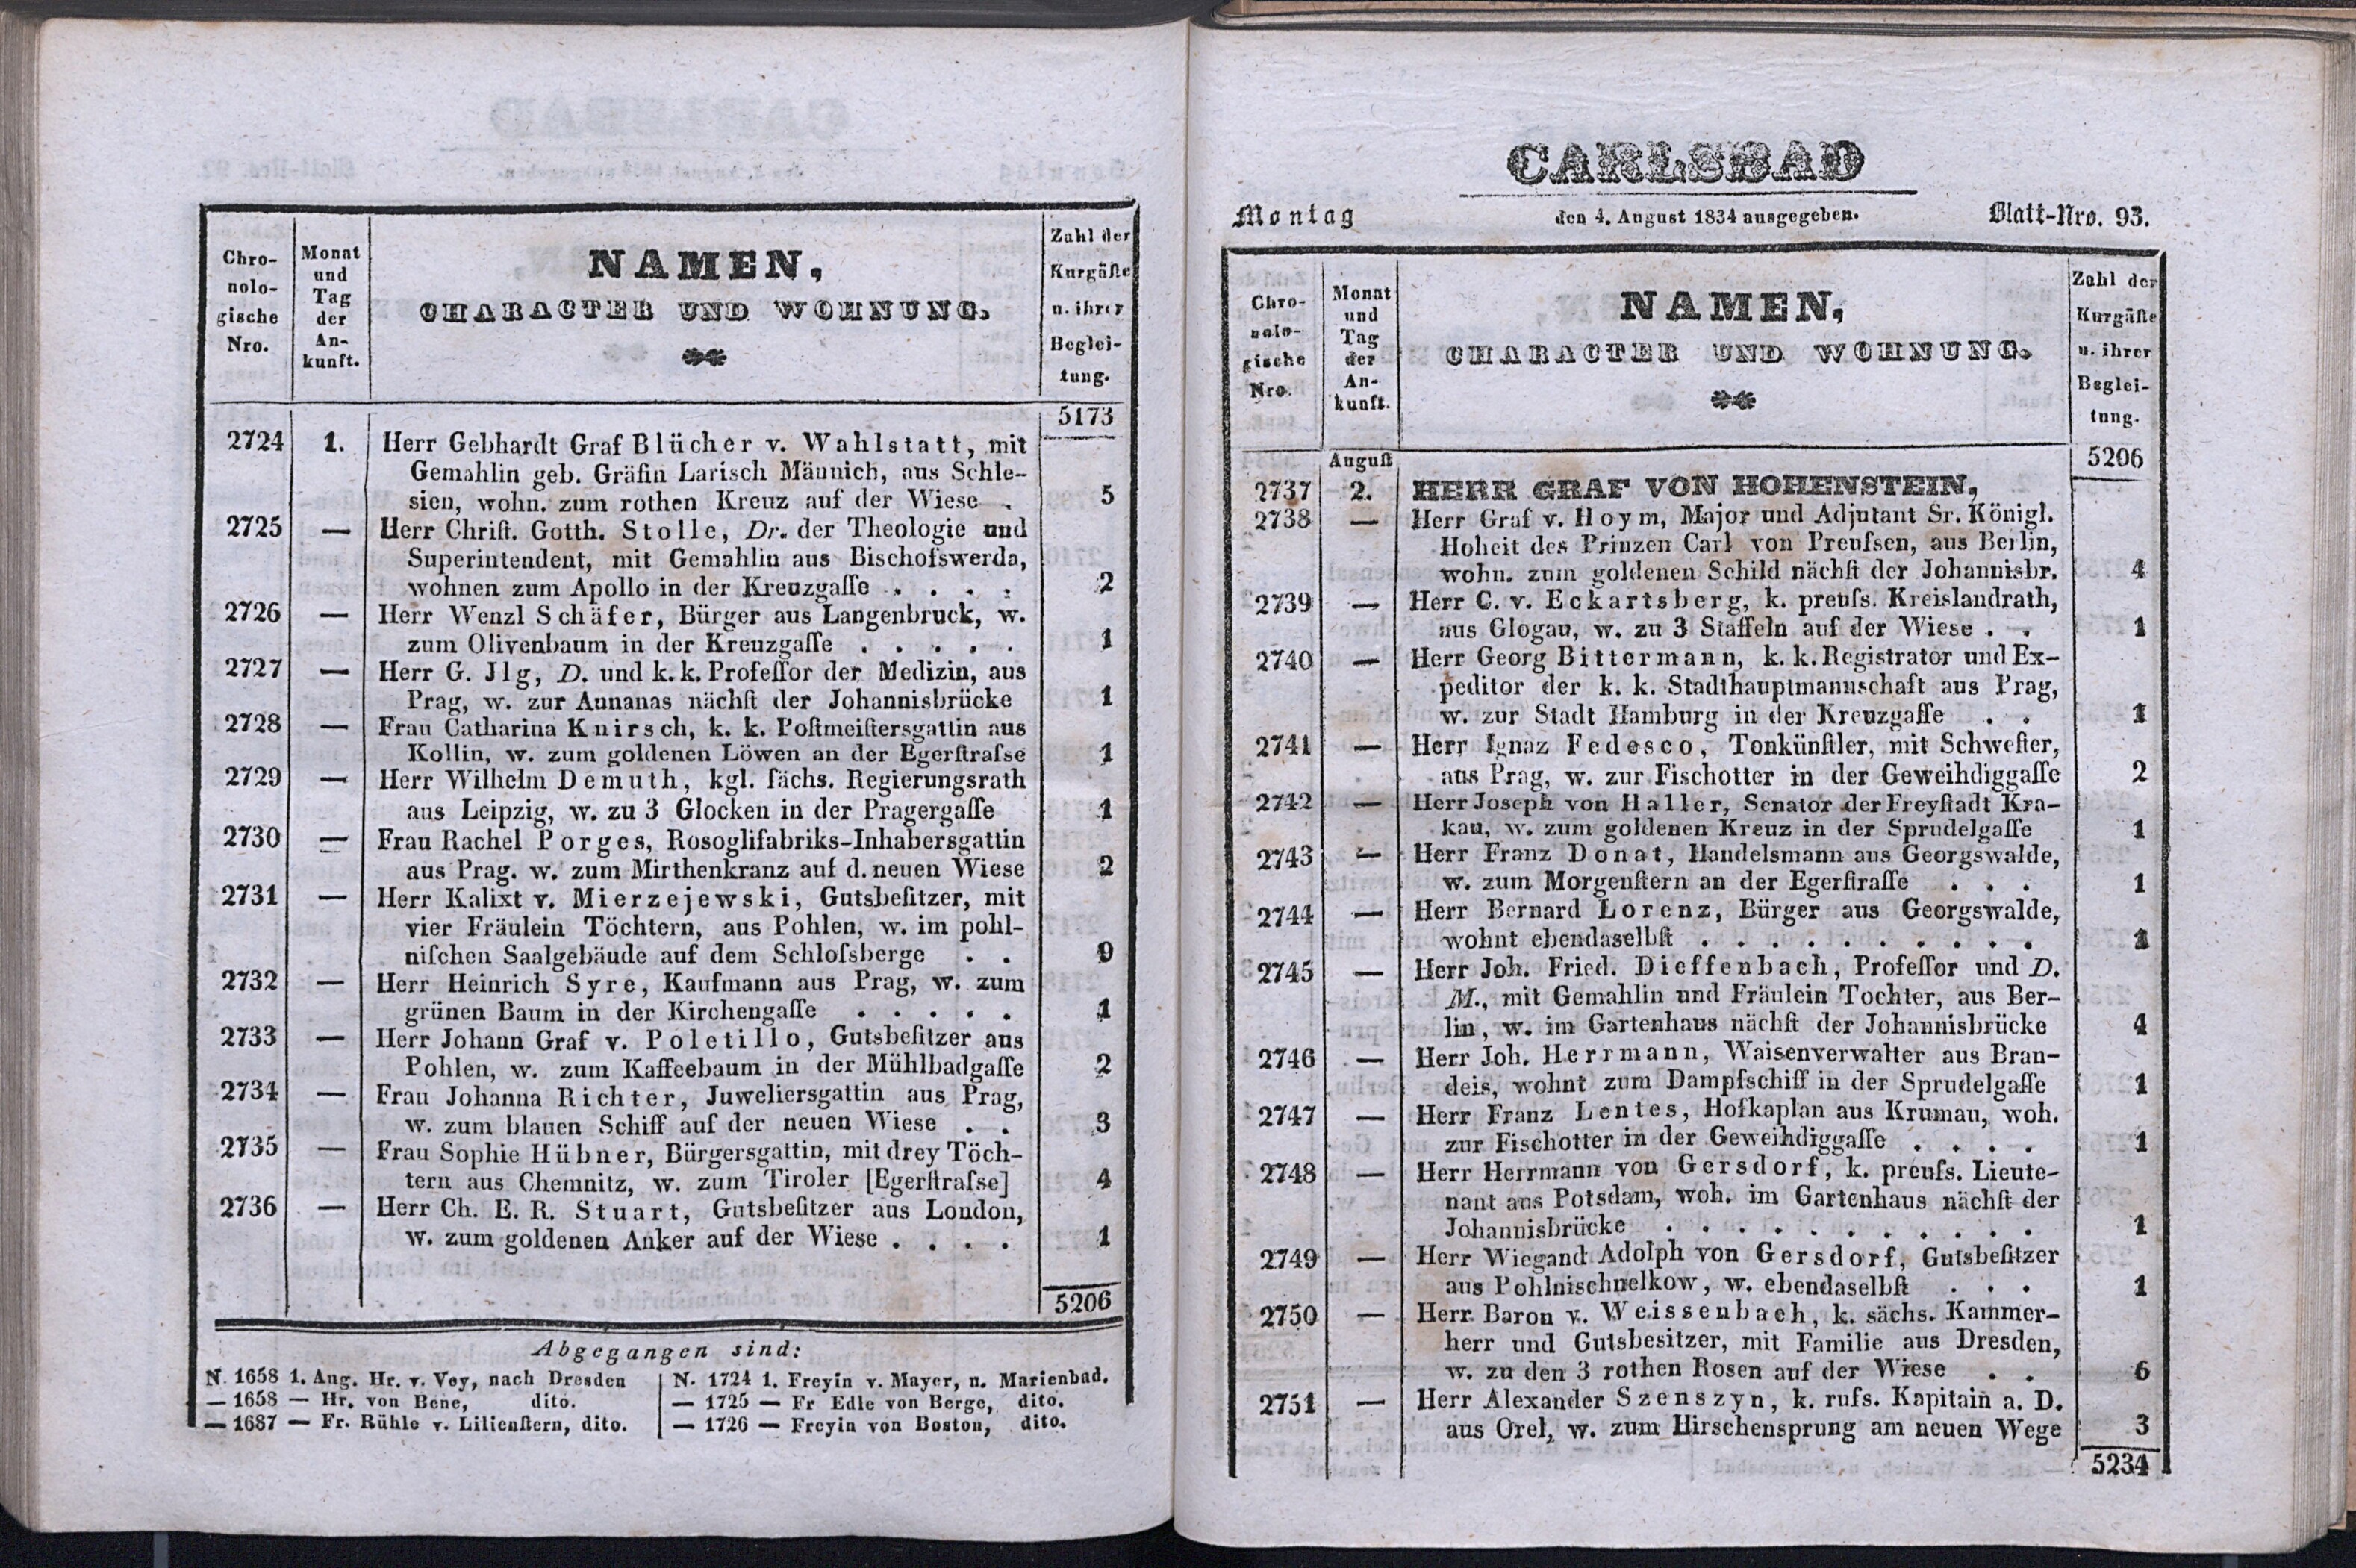 Chro-
nolo-
gische
Nro.
Monat
und
Tag
der
An-
kunft.
NAMEN,
CHARACTER UND WOHNUNG.
Zahl der
Kurgäſte
u. ihrer
Beglei-
tung.
5173
2724 1. Herr Gebhardt Graf Blücher v. Wahlstatt, mit
Gemahlin geb. Gräfin Larisch Männich, aus Schle-
sien, wohn. zum rothen Kreuz auf der Wiese . 5
2725 — Herr Chriſt. Gotth. Stolle, Dr. der Theologie und
Superintendent, mit Gemahlin aus Bischofswerda,
wohnen zum Apollo in der Kreuzgaſſe . . . . 2
2726 — Herr Wenzl Schäfer, Bürger aus Langenbruck, w.
zum Olivenbaum in der Kreuzgaſſe . . . . . 1
2727 — Herr G. Jlg, D. und k. k. Profeſſor der Medizin, aus
Prag, w. zur Annanas nächſt der Johannisbrücke 1
2728 — Frau Catharina Knirsch, k. k. Poſtmeiſtersgattin aus
Kollin, w. zum goldenen Löwen an der Egerſtraſse 1
2729 — Herr Wilhelm Demuth, kgl. ſächs. Regierungsrath
aus Leipzig, w. zu 3 Glocken in der Pragergaſſe 1
2730 — Frau Rachel Porges, Rosoglifabriks-Inhabersgattin
aus Prag. w. zum Mirthenkranz auf d. neuen Wiese 2
2731 — Herr Kalixt v. Mierzejewski, Gutsbeſitzer, mit
vier Fräulein Töchtern, aus Pohlen, w. im pohl-
niſchen Saalgebäude auf dem Schloſsberge . . 9
2732 — Herr Heinrich Syre, Kaufmann aus Prag, w. zum
grünen Baum in der Kirchengaſſe . . . . . 1
2733 — Herr Johann Graf v. Poletillo, Gutsbeſitzer aus
Pohlen, w. zum Kaffeebaum in der Mühlbadgaſſe 2
2734 — Frau Johanna Richter, Juweliersgattin aus Prag,
w. zum blauen Schiff auf der neuen Wiese . . 3
2735 — Frau Sophie Hübner, Bürgersgattin, mit drey Töch-
tern aus Chemnitz, w. zum Tiroler [Egerſtraſse] 4
2736 — Herr Ch. E. R. Stuart, Gutsbeſitzer aus London,
w. zum goldenen Anker auf der Wiese . . . . 1
5206
Abgegangen sind:
N. 1658 1. Aug. Hr. v. Voy, nach Dresden
— 1658 — Hr. von Bene, dito.
— 1687 — Fr. Rühle v. Lilienſtern, dito.
N. 1724 1. Freyin v. Mayer, n. Marienbad.
— 1725 — Fr Edle von Berge, dito.
— 1726 — Freyin von Boston, dito.
CARLSBAD
Montag den 4. August 1834 ausgegeben. Blatt-Nro. 93.
Chro-
nolo-
gische
Nro.
Monat
und
Tag
der
An-
kunft.
NAMEN,
CHARACTER UND WOHNUNG.
Zahl der
Kurgäſte
u. ihrer
Beglei-
tung.
August 5206
2737 2. HERR GRAF VON HOHENSTEIN,
2738 — Herr Graf v. Hoym, Major und Adjutant Sr. Königl.
Hoheit des Prinzen Carl von Preuſsen, aus Berlin,
wohn. zum goldenen Schild nächſt der Johannisbr. 4
2739 — Herr C. v. Eckartsberg, k. preuſs. Kreislandrath,
aus Glogau, w. zu 3 Staffeln auf der Wiese . . 1
2740 — Herr Georg Bittermann, k. k. Registrator und Ex-
peditor der k. k. Stadthauptmannschaft aus Prag,
w. zur Stadt Hamburg in der Kreuzgaſſe . . 1
2741 — Herr Ignaz Fedesco, Tonkünſtler, mit Schweſter,
aus Prag, w. zur Fischotter in der Geweihdiggaſſe 2
2742 — Herr Joseph von Haller, Senator der Freyſtadt Kra-
kau, w. zum goldenen Kreuz in der Sprudelgaſſe 1
2743 — Herr Franz Donat, Handelsmann aus Georgswalde,
w. zum Morgenſtern an der Egerſtraſſe . . . 1
2744 — Herr Bernard Lorenz, Bürger aus Georgswalde,
wohnt ebendaselbſt . . . . . . . . . 1
2745 — Herr Joh. Fried. Dieffenbach, Profeſſor und D.
M., mit Gemahlin und Fräulein Tochter, aus Ber-
lin, w. im Gartenhaus nächſt der Johannisbrücke 4
2746 — Herr Joh. Herrmann, Waisenverwalter aus Bran-
deis, wohnt zum Dampfschiff in der Sprudelgaſſe 1
2747 — Herr Franz Lentes, Hofkaplan aus Krumau, woh.
zur Fischotter in der Geweihdiggaſſe . . . . 1
2748 — Herr Herrmann von Gersdorf, k. preuſs. Lieute-
nant aus Potsdam, woh. im Gartenhaus nächſt der
Johannisbrücke . . . . . . . . . . 1
2749 — Herr Wiegand Adolph von Gersdorf, Gutsbeſitzer
aus Pohlnischnelkow, w. ebendaselbſt . . . 1
2750 — Herr Baron v. Weissenbach, k. sächs. Kammer-
herr und Gutsbesitzer, mit Familie aus Dresden,
w. zu den 3 rothen Rosen auf der Wiese . . 6
2751 — Herr Alexander Szenszyn, k. ruſs. Kapitain a. D.
aus Orel, w. zum Hirschensprung am neuen Wege 3
5234